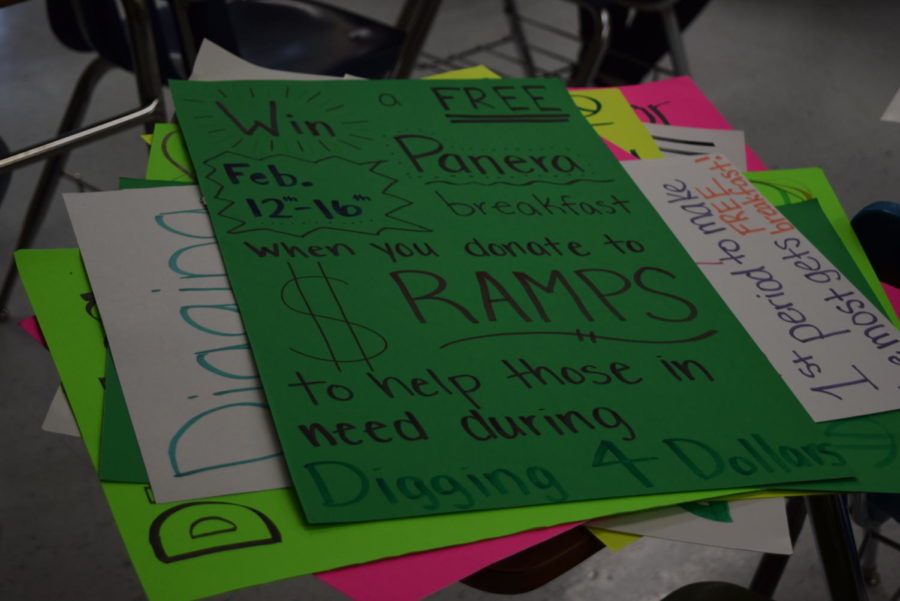 Win a FREE
Panera
Feb.
12th-16th
breakfast
when you donate to
$ RAMPS
to help those in
need during
Digging 4 Dollars
Digging
1st period to make
most gets
FREE
breakfast!
or
D